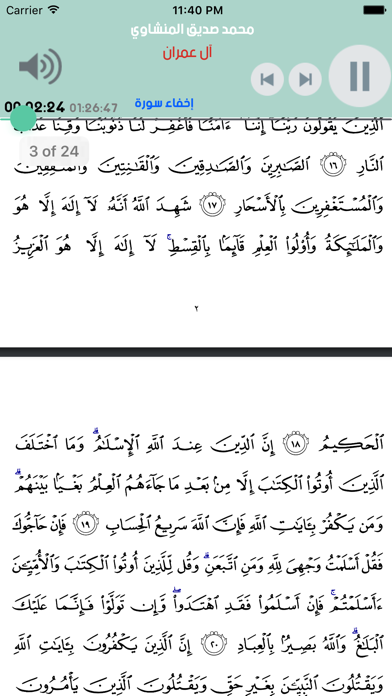 Carrier 11:40 PM
محمد صديق المنشاوي
آل عمران
00:02:24 01:26:47 إخفاء سورة
ٱلَّذِينَ يَقُولُونَ رَبَّنَآ إِنَّنَآ ءَامَنَّا فَٱغْفِرْ لَنَا ذُنُوبَنَا وَقِنَا عَذَابَ
3 of 24
ٱلنَّارِ ١٦ ٱلصَّٰبِرِينَ وَٱلصَّٰدِقِينَ وَٱلْقَٰنِتِينَ وَٱلْمُنفِقِينَ
وَٱلْمُسْتَغْفِرِينَ بِٱلْأَسْحَارِ ١٧ شَهِدَ ٱللَّهُ أَنَّهُۥ لَآ إِلَٰهَ إِلَّا هُوَ
وَٱلْمَلَٰٓئِكَةُ وَأُو۟لُوا۟ ٱلْعِلْمِ قَآئِمًۢا بِٱلْقِسْطِ ۚ لَآ إِلَٰهَ إِلَّا هُوَ ٱلْعَزِيزُ
٢
ٱلْحَكِيمُ ١٨ إِنَّ ٱلدِّينَ عِندَ ٱللَّهِ ٱلْإِسْلَٰمُ ۗ وَمَا ٱخْتَلَفَ
ٱلَّذِينَ أُوتُوا۟ ٱلْكِتَٰبَ إِلَّا مِنۢ بَعْدِ مَا جَآءَهُمُ ٱلْعِلْمُ بَغْيًۢا بَيْنَهُمْ ۗ
وَمَن يَكْفُرْ بِـَٔايَٰتِ ٱللَّهِ فَإِنَّ ٱللَّهَ سَرِيعُ ٱلْحِسَابِ ١٩ فَإِنْ حَآجُّوكَ
فَقُلْ أَسْلَمْتُ وَجْهِىَ لِلَّهِ وَمَنِ ٱتَّبَعَنِ ۗ وَقُل لِّلَّذِينَ أُوتُوا۟ ٱلْكِتَٰبَ وَٱلْأُمِّيِّـۧنَ
ءَأَسْلَمْتُمْ ۚ فَإِنْ أَسْلَمُوا۟ فَقَدِ ٱهْتَدَوا۟ ۖ وَّإِن تَوَلَّوْا۟ فَإِنَّمَا عَلَيْكَ
ٱلْبَلَٰغُ ۗ وَٱللَّهُ بَصِيرٌۢ بِٱلْعِبَادِ ٢٠ إِنَّ ٱلَّذِينَ يَكْفُرُونَ بِـَٔايَٰتِ ٱللَّهِ
وَيَقْتُلُونَ ٱلنَّبِيِّـۧنَ بِغَيْرِ حَقٍّ وَيَقْتُلُونَ ٱلَّذِينَ يَأْمُرُونَ